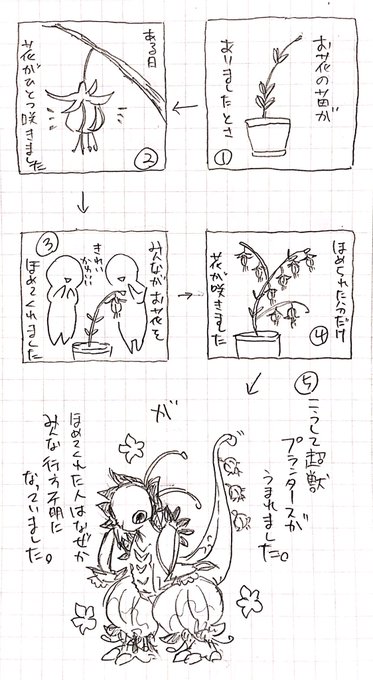 お花の苗が
ありましたとさ
①
ある日
花がひとつ咲きました
②
③
みんながお花を
きれい
かわいい
ほめてくれました
ほめられた分だけ
花が咲きました
④
⑤
こうして超獣
プランタースが
うまれました。
が
ほめてくれた人はなぜか
みんな行方不明に
なっていました。